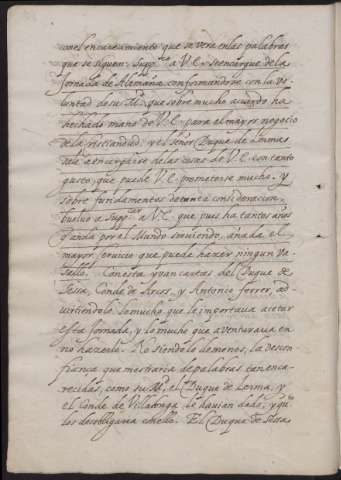 con el encarecimiento que se vera en las palabras
que se siguen. Supp.co a V.E. se encargue de la
Jornada de Alemaña conformandose con la vo-
luntad de su M.d que sobre mucho acuerdo ha
hechado mano de V.E. para el mayor negocio
de la Christiandad, y el Señor Duque de Lerma
a encargarse de las cosas de V.E. con tanto
gusto, que puede V.E. prometerse mucho. y
sobre fundamentos de tanta consideracion,
buelvo a Supp.car a V.E. que pues ha tantos años
q anda por el Mundo sirviendo, añada el
mayor servicio que puede hazer ningun va-
sallo. Con esta yvan cartas del Duque de
Sessa, Conde de Arcos, y Antonio ferrer, ad-
virtiendole lo mucho que le importava acetar
esta Jornada, y lo mucho que aventurava en
no hazerlo. No siendo lo de menos, la descon-
fiança que mostraria de palabras tan enca-
recidas, como su M.d el Duque de Lerma, y
el Conde de Villalonga le havian dado, y q
los desobligaria con ello. El Duque de Sessa